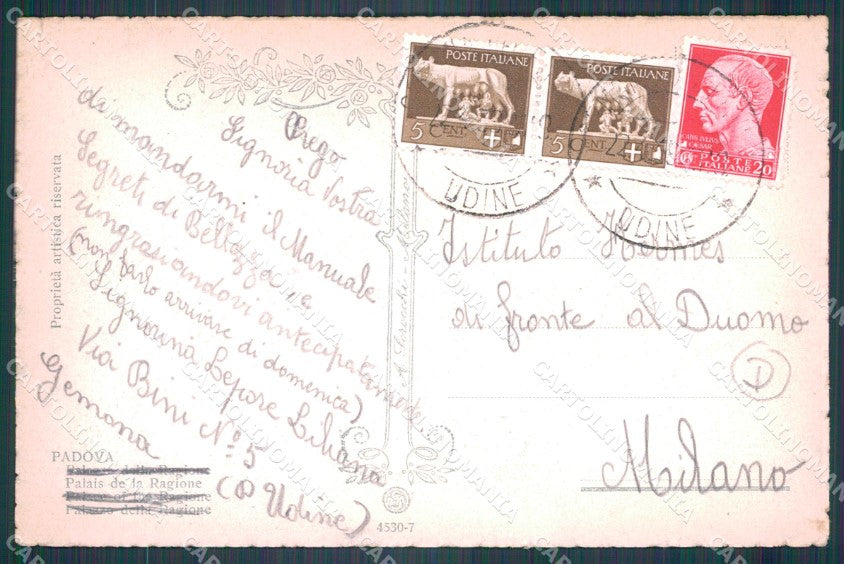 Prego
Signoria Vostra
di mandarmi il Manuale
Segreti di Bellezza e
ringrasiandovi antecipatamente
(non farlo arrivare di domenica)
Signorina Lepore Liliana
Via Bini N° 5
Gemona
(P Udine)
Istituto Hermes
di fronte al Duomo
D
Milano
POSTE ITALIANE
5 CENT.
POSTE ITALIANE
5 CENT.
CAIVS IVLIVS
CAESAR
POSTE
ITALIANE 20
UDINE
UDINE
Proprietà artistica riservata
PADOVA
Palazzo della Ragione
Palais de la Ragione
Palace of the Ragione
Palazzo della Ragione
4530-7
CARTOLINOMANIA